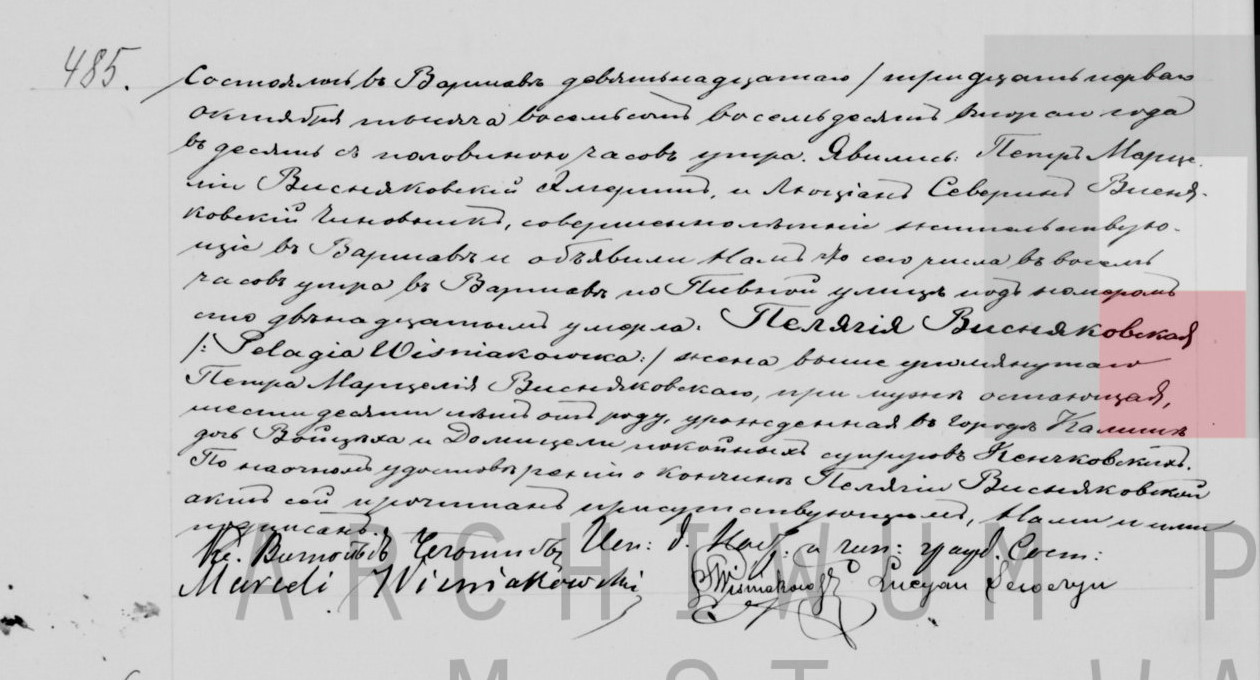 485.
Состоялось въ Варшавѣ девятьнадцатаго / тридцать перваго
октября тысяча восемьсотъ восемьдесятъ второго года
въ десять съ половиною часовъ утра. Явились: Петръ Марце-
лій Висняковскій Эмеритъ, и Люціанъ Северинъ Висня-
ковскій Чиновникъ, совершеннолѣтніе жительствую-
щіе въ Варшавѣ и объявили Намъ что сего числа въ восемь
часовъ утра въ Варшавѣ по Пивной улицѣ подъ номеромъ
сто двѣнадцатымъ умерла: Пелягія Висняковская
/: Pelagia Wiśniakowska :/ жена выше упомянутаго
Петра Марцелія Висняковскаго, при мужѣ остающая,
шестидесяти лѣтъ отъ роду, урожденная въ городѣ Калишѣ
дочь Войцѣха и Домицели покойныхъ супруговъ Кенчковскихъ.
По наочномъ удостовѣреніи о кончинѣ Пелягіи Висняковской
актъ сей прочитанъ присутствующимъ, Нами и ими
подписанъ.
Кс. Витольдъ Исп: д. Наст: и чин: гражд. Сост:
Marceli Wiśniakowski Lucyan Seweryn
ARCHIWUM P
M ST WA